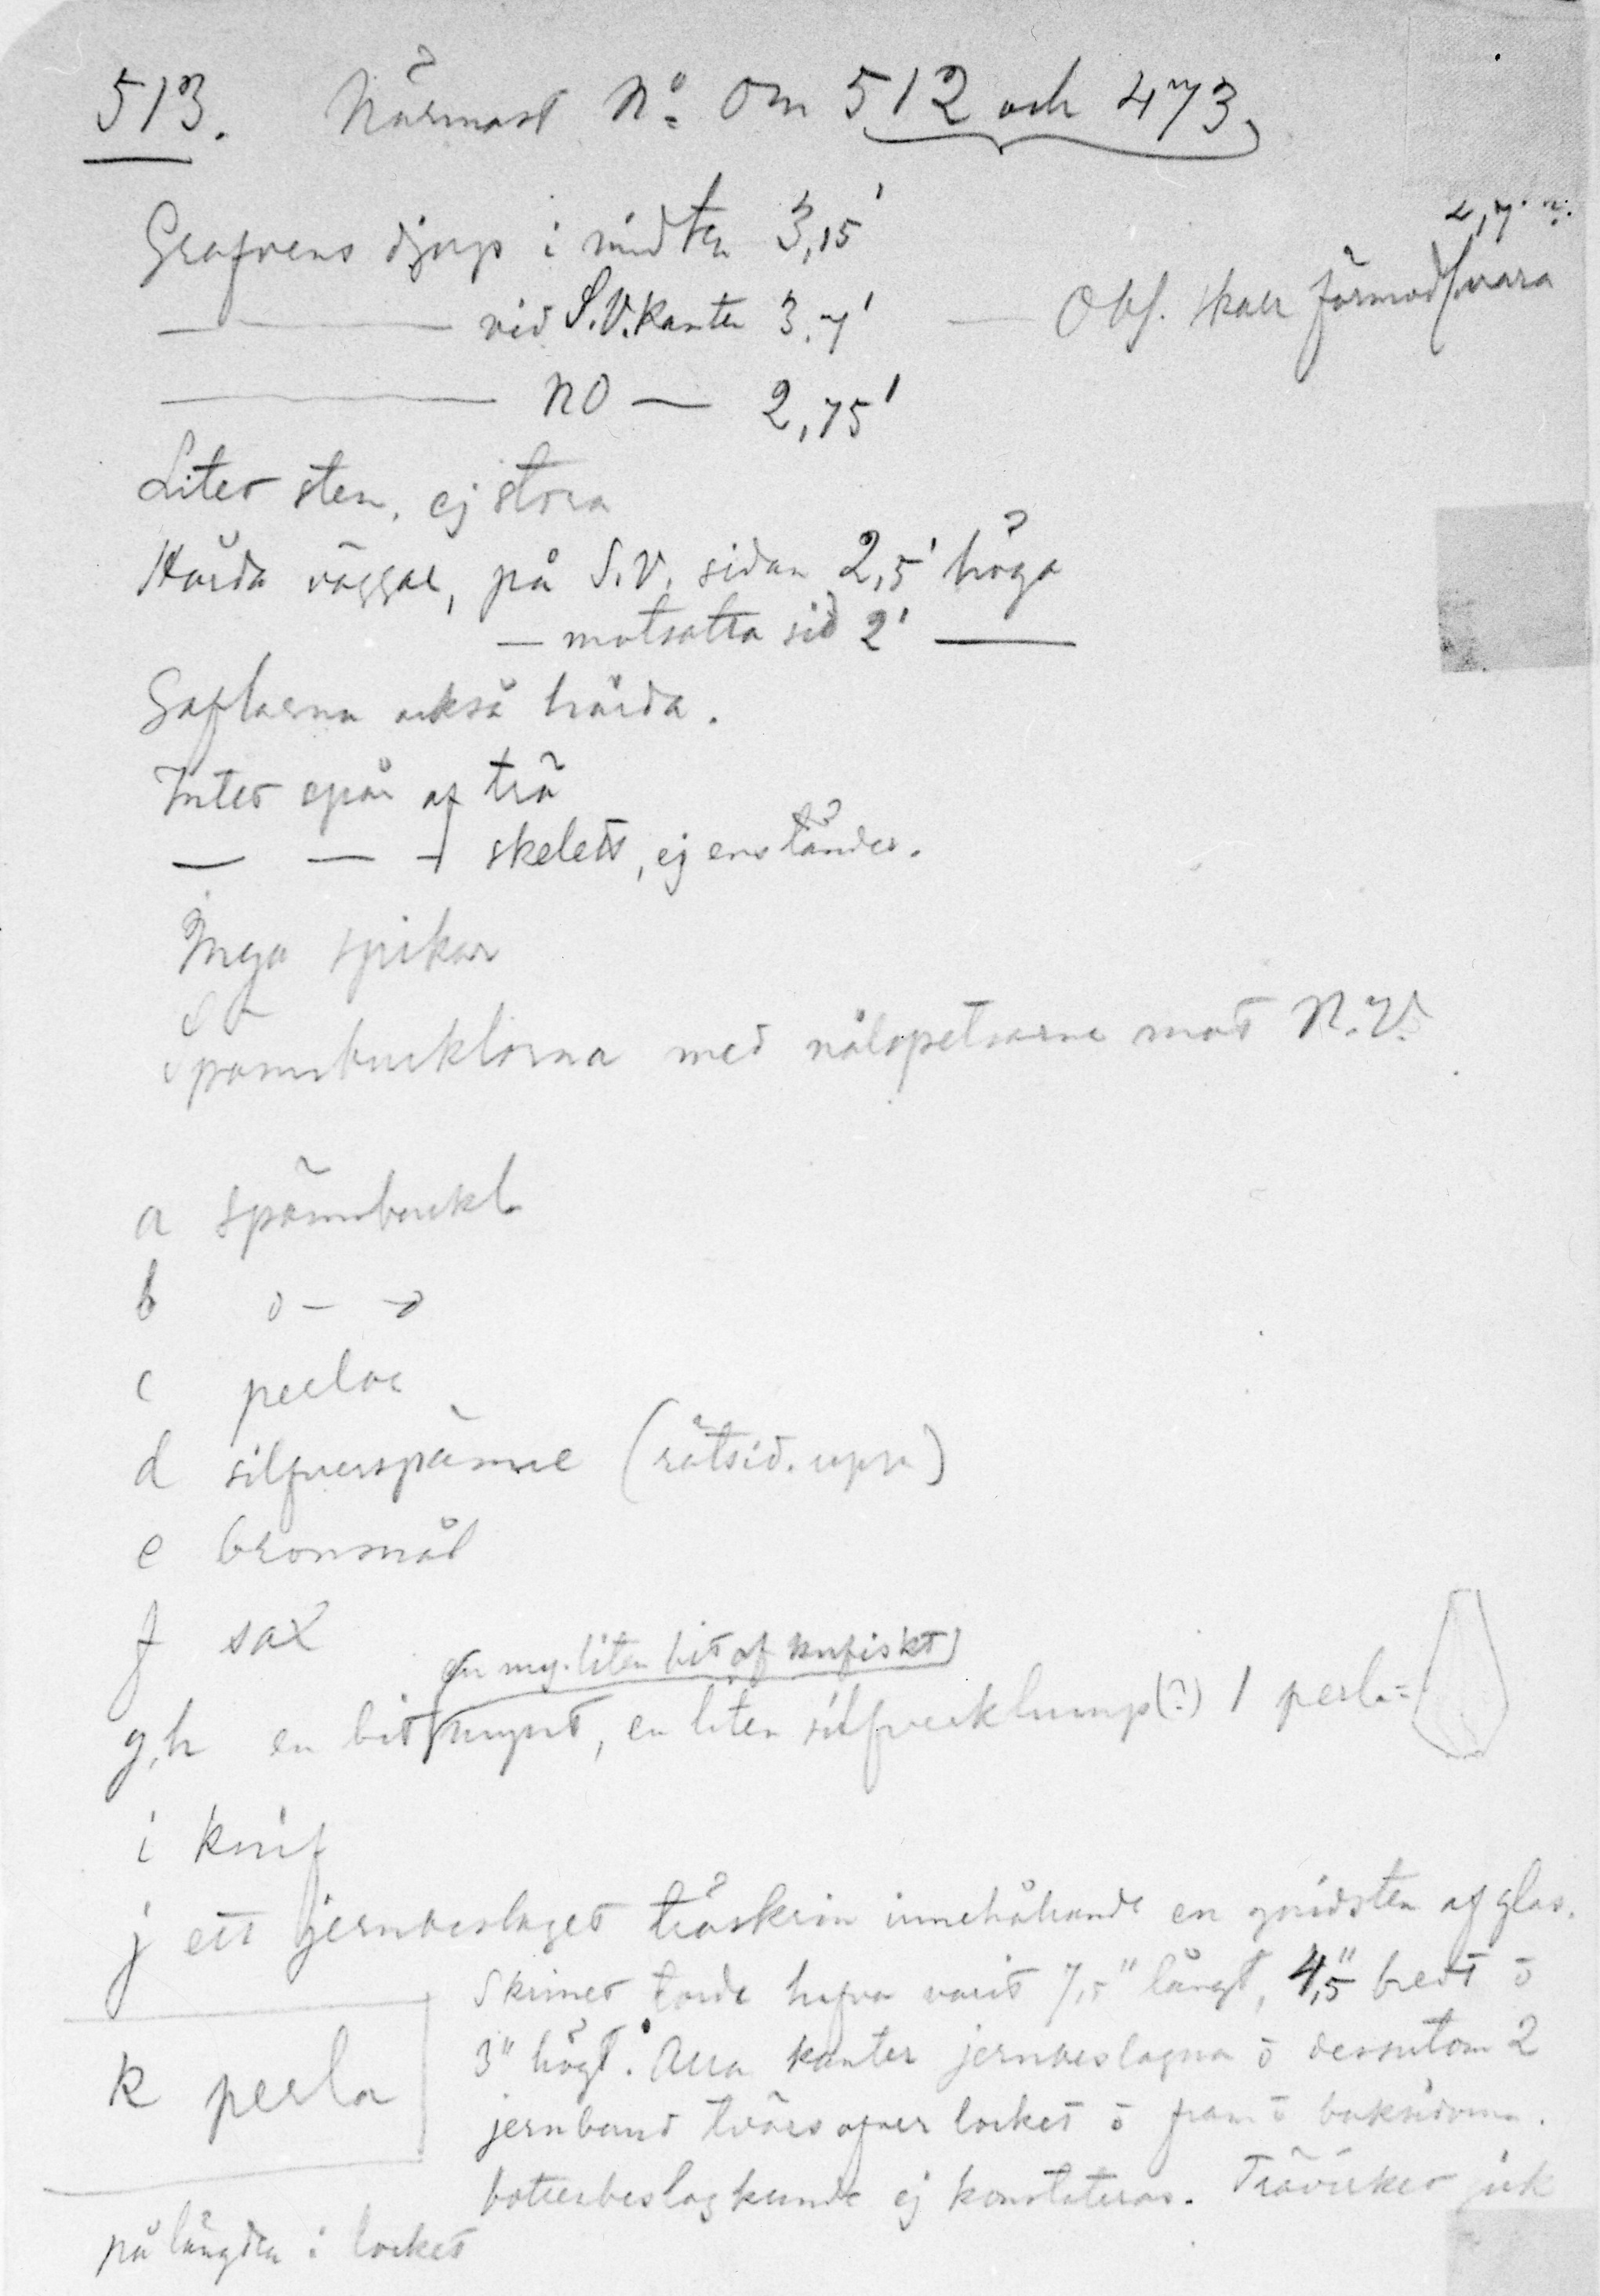 513. Närmast No om 512 och 473
Grafvens djup i midten 3,15'
2,7'
——— vid S.V. kanten 3,7' — Obs. skall förmodl. vara
——— NO — 2,75'
Litet sten, ej stora
Hårda väggar, på S.V. sidan 2,5' höga
— motsatta sid 2' —
Gaflarna också hårda.
Intet spår af trä
— — — skelett, ej ens tänder.
Inga spikar
Spännbucklorna med nålspetsarne mot N.V.
a spännbuckl.
b
c perlor
d silfverspänne (rätsid. upp)
e bronsnål
f sax
en myc. liten bit af kufiskt
g,h en bit mynt, en liten silfverklump (?) 1 perla =
i knif
j ett jernbeslaget träskrin innehållande en gnidsten af glas.
Skrinet torde hafva varit 7,5" långt, 4,5" bredt o
3" högt. Alla kanter jernbeslagna o dessutom 2
k perla
jernband tvärs öfver locket o fram o baksidorna.
bottenbeslag kunde ej konstateras. Trävirket gick
på längden i locket